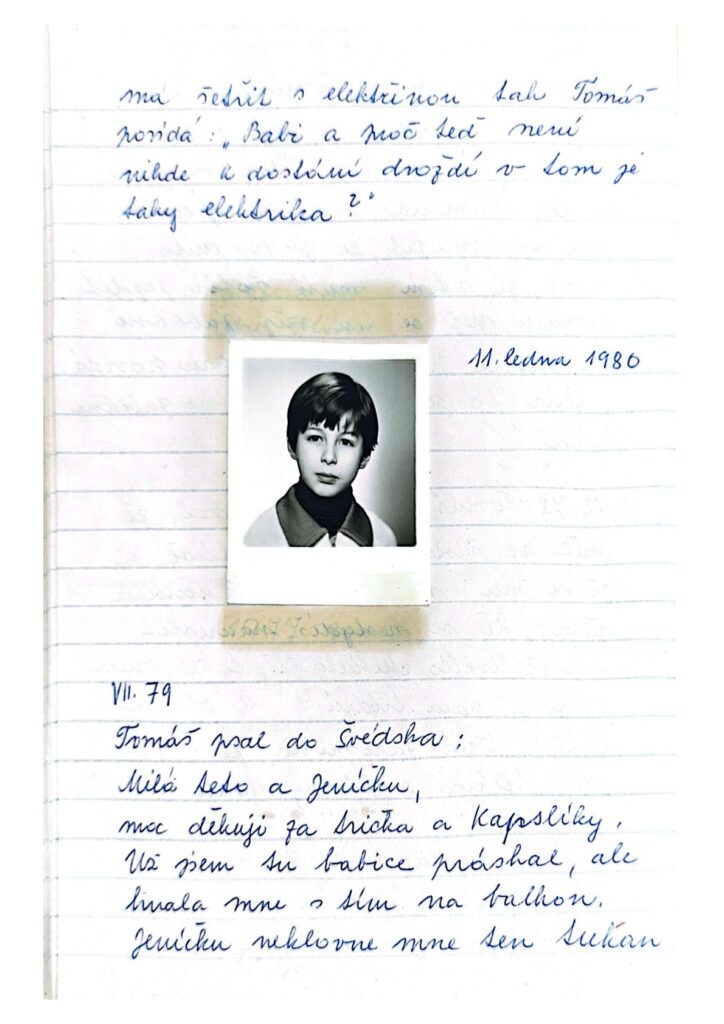 má šetřit s elektřinou tak Tomáš
povídá: „Babi a proč teď není
nikde k dostání droždí v tom je
taky elektrika?"
11. ledna 1980
VII. 79
Tomáš psal do Švédska:
Milá teto a Jeníčku,
moc děkuji za trička a Kapslíky.
Už jsem tu babice práskal, ale
hnala mne s tím na balkon.
Jeníčku neklovne mne ten tukan